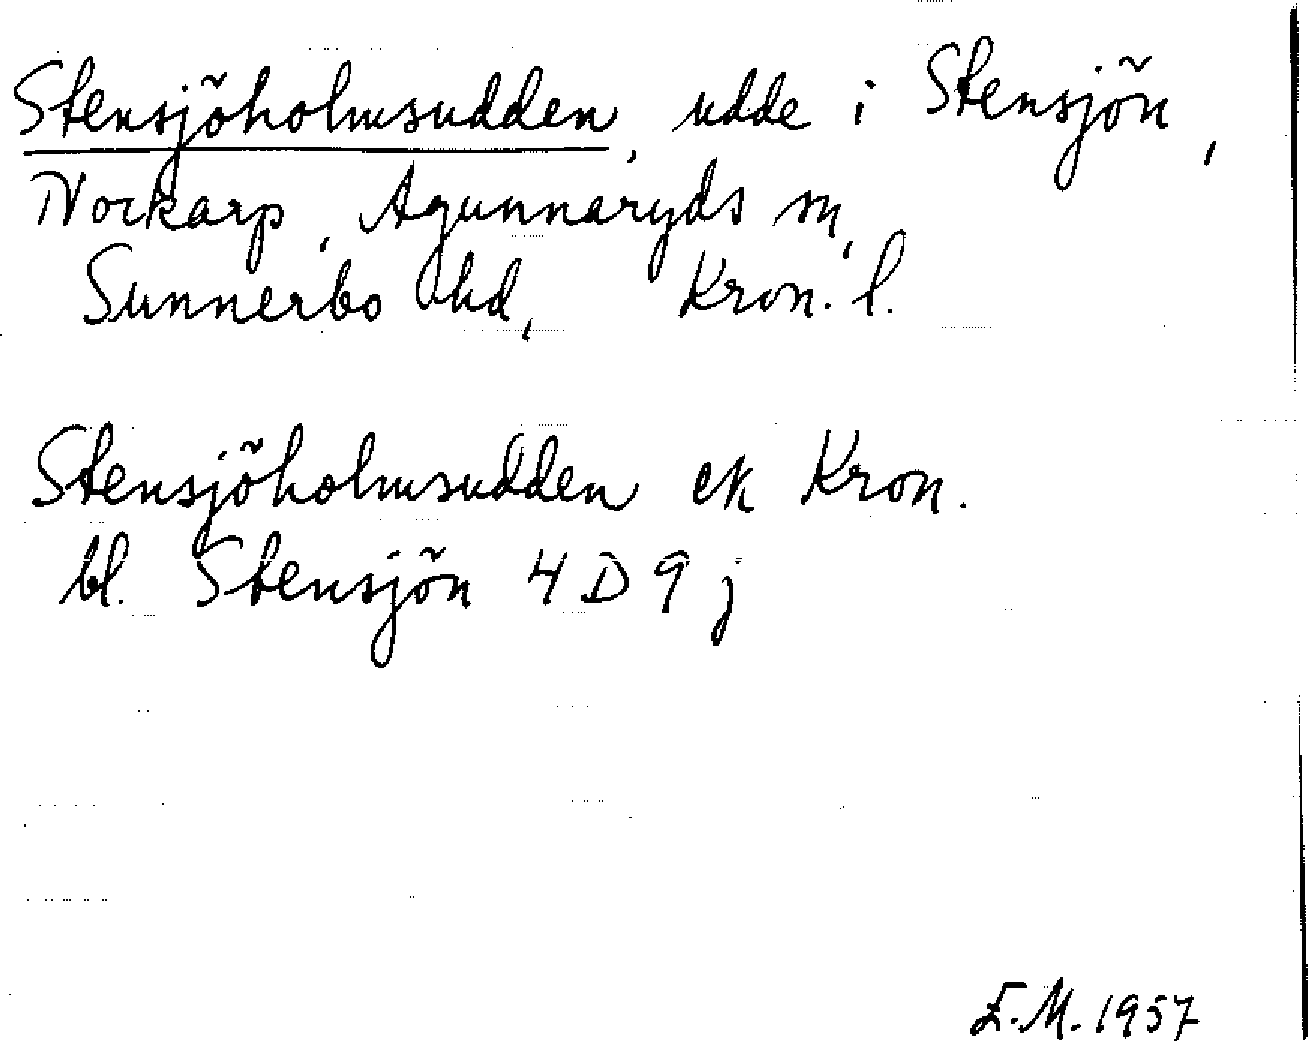 Stensjöholmsudden, udde i Stensjön,
Nockarp, Agunnaryds sn,
Sunnerbo hd, Kron. l.
Stensjöholmsudden ek Kron.
bl. Stensjön 4 D 9 j
E.M. 1957